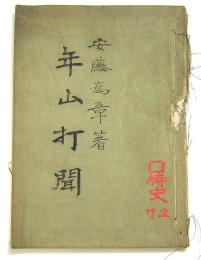 安藤為章著
年山打聞
口特史
72